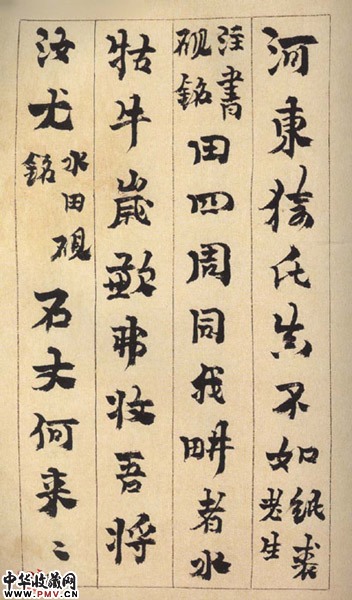 河東猗氏不如紙裘老生
注書硯銘田四周同我畊者水
牯牛嵗歉弗收吾將
汝尤水田硯銘石丈何来〻
中华收藏网
www.PMV.CN